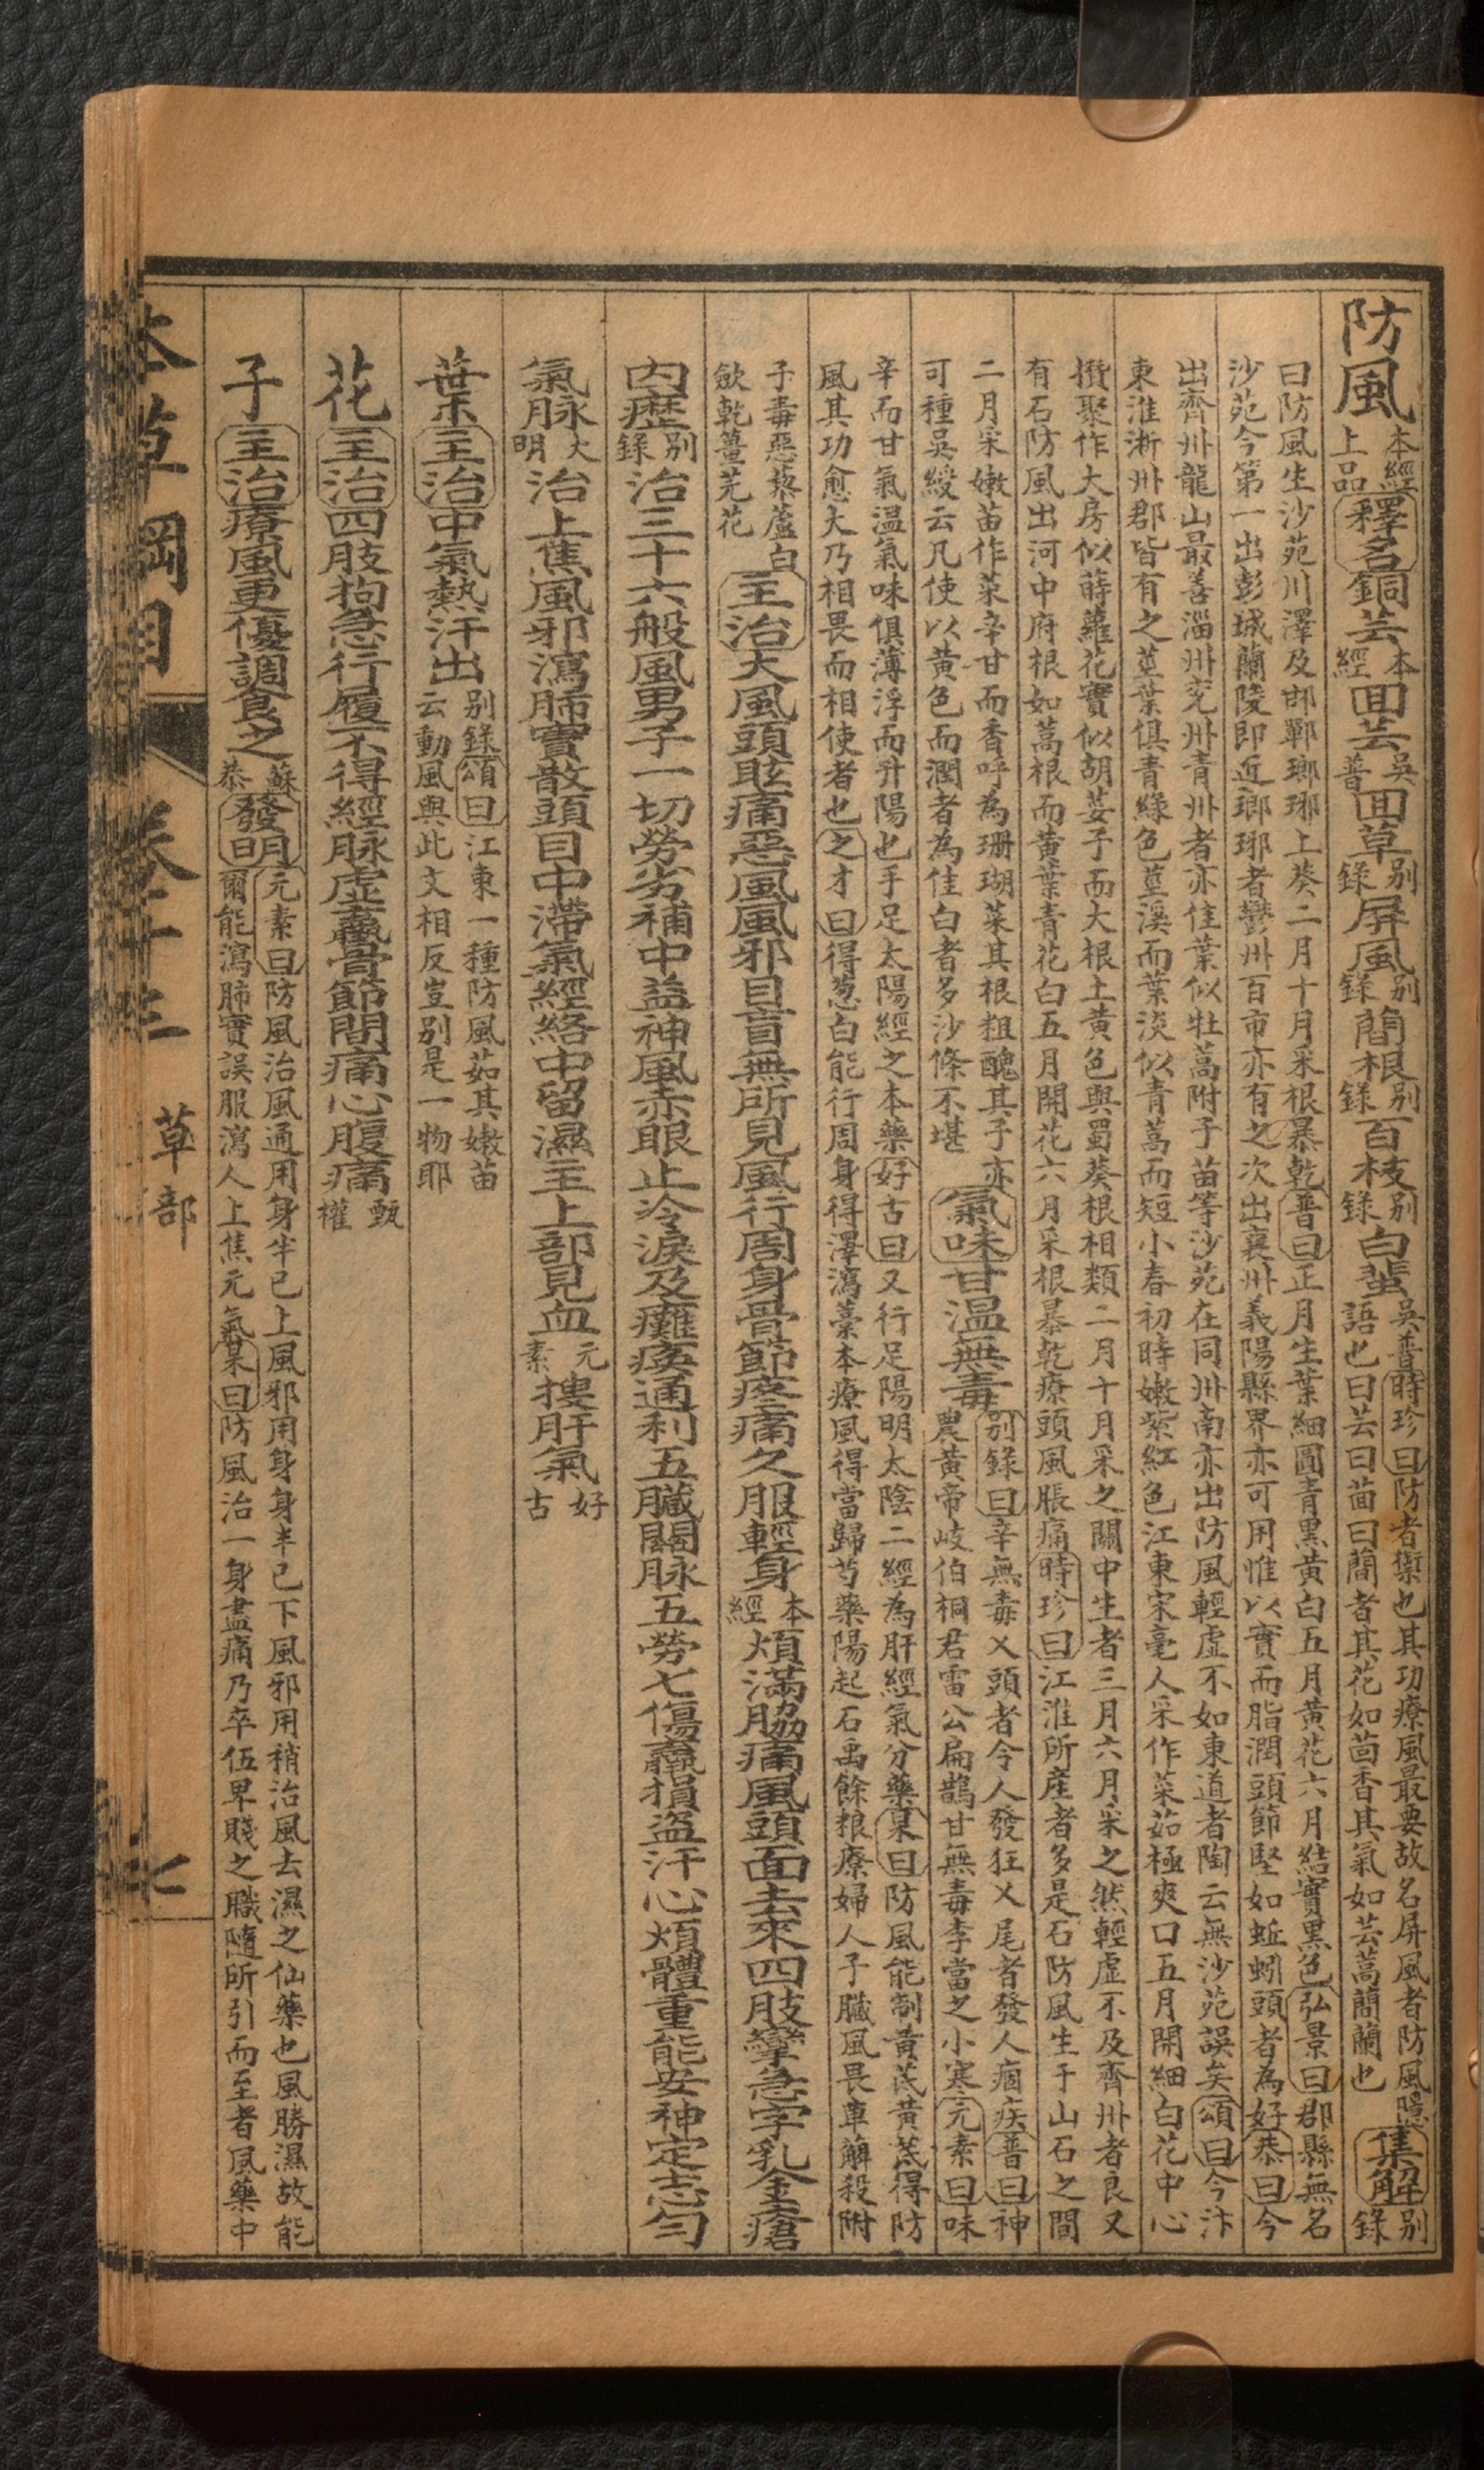 防風本經上品釋名銅芸本經回芸吳普回草別錄屏風別錄蕳根別錄百枝別錄白蜚吳普時珍曰防者禦也其功療風最要故名屏風者防風隱語也曰芸曰茴曰蕳者其花如茴香其氣如芸蒿蕳蘭也集解別錄
曰防風生沙苑川澤及邯鄲瑯琊上葵二月十月采根暴乾普曰正月生葉細圓青黑黃白五月黃花六月結實黑色弘景曰郡縣無名
沙苑今第一出彭城蘭陵即近瑯琊者鬱州百市亦有之次出襄州義陽縣界亦可用惟以實而脂潤頭節堅如蚯蚓頭者為好恭曰今
出齊州龍山最善淄州兗州青州者亦佳葉似牡蒿附子苗等沙苑在同州南亦出防風輕虛不如東道者陶云無沙苑誤矣頌曰今汴
東淮淅州郡皆有之莖葉俱青綠色莖溪而葉淡似青蒿而短小春初時嫩紫紅色江東宋亳人采作菜茹極爽口五月開細白花中心
攢聚作大房似蒔蘿花實似胡荽子而大根土黃色與蜀葵根相類二月十月采之關中生者三月六月采之然輕虛不及齊州者良又
有石防風出河中府根如蒿根而黃葉青花白五月開花六月采根暴乾療頭風脹痛時珍曰江淮所産者多是石防風生于山石之間
二月采嫩苗作菜辛甘而香呼為珊瑚菜其根粗醜其子亦
可種吳綬云凡使以黃色而潤者為佳白者多沙條不堪
氣味甘溫無毒別錄曰辛無毒乂頭者令人發狂乂尾者發人痼疾普曰神
農黃帝岐伯桐君雷公扁鵲甘無毒李當之小寒元素曰味
辛而甘氣溫氣味俱薄浮而升陽也手足太陽經之本藥好古曰又行足陽明太陰二經為肝經氣分藥杲曰防風能制黃芪黃芪得防
風其功愈大乃相畏而相使者也之才曰得葱白能行周身得澤瀉藁本療風得當歸芍藥陽起石禹餘粮療婦人子臟風畏萆薢殺附
子毒惡藜蘆白
歛乾薑芫花
主治大風頭眩痛惡風風邪目盲無所見風行周身骨節疼痛久服輕身本經煩滿脇痛風頭面去來四肢攣急字乳金瘡
內痙別錄治三十六般風男子一切勞劣補中益神風赤眼止冷淚及癱瘓通利五臟關脉五勞七傷羸損盜汗心煩體重能安神定志勻
氣脉大明治上焦風邪瀉肺實散頭目中滯氣經絡中留濕主上部見血元素摟肝氣好古
葉主治中氣熱汗出別錄頌曰江東一種防風茹其嫩苗云動風與此文相反豈別是一物耶
花主治四肢拘急行履不得經脉虛羸骨節間痛心腹痛甄權
子主治療風更優調食之蘇恭發明元素曰防風治風通用身半已上風邪用身身半已下風邪用稍治風去濕之仙藥也風勝濕故能
爾能瀉肺實誤服瀉人上焦元氣杲曰防風治一身盡痛乃卒伍卑賤之職隨所引而至者風藥中
本草綱目 卷十三 草部 七